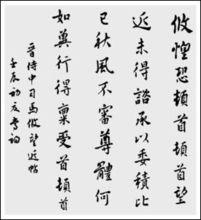 攸惶恐頓首頓首望
近未得諮承以委積比
已秋風不審尊體何
如冀行得稟受首頓首
晉侍中司馬攸望近帖
壬辰初夏